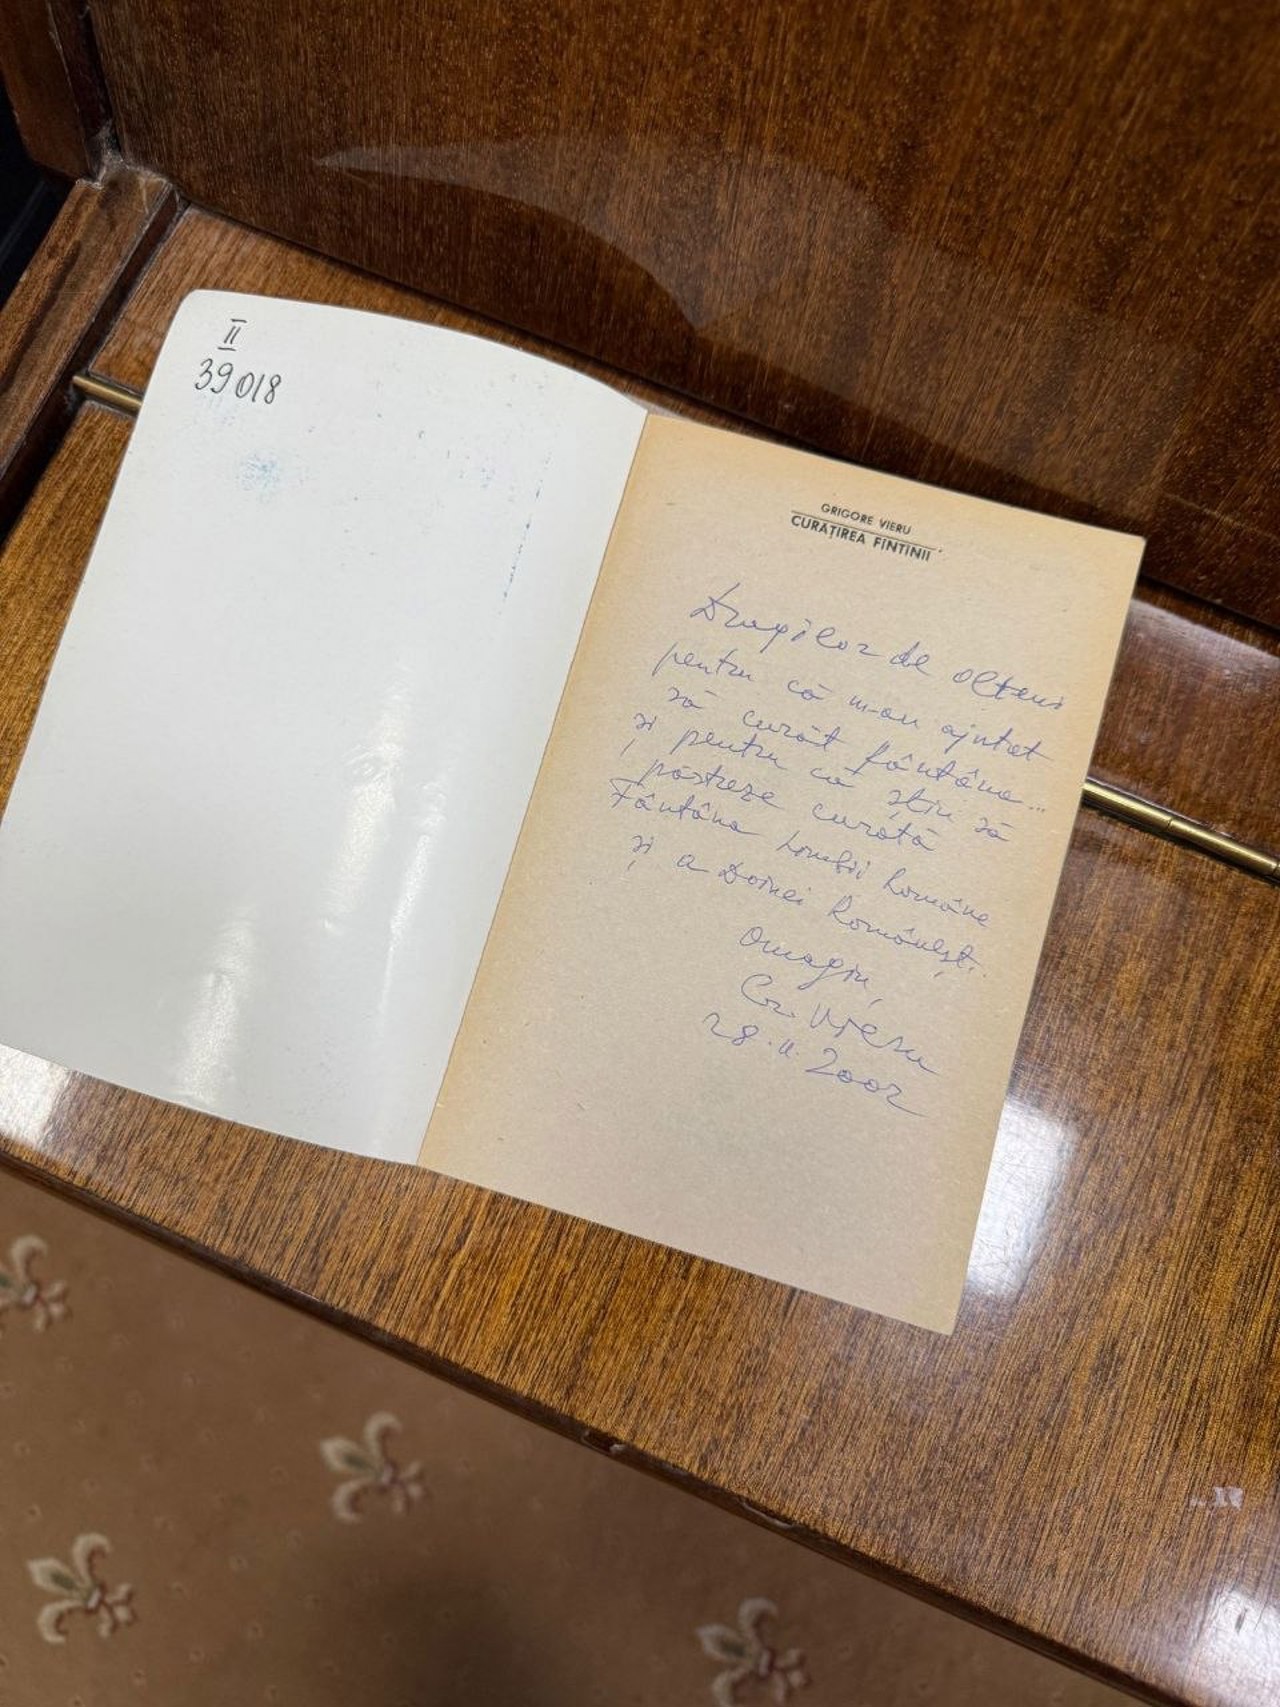 II
39018
GRIGORE VIERU
CURĂȚIREA FÎNTÎNII
Dragilor de olteni
pentru că m-au ajutat
să curăt fântâna...
și pentru că știu să
păstreze curată
Fântâna Limbii Române
și a Doinei Românești.
Omagiu,
Gr. Vieru
28.II.2002